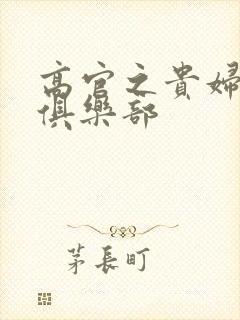 高官之貴婦
俱樂部
茅長町